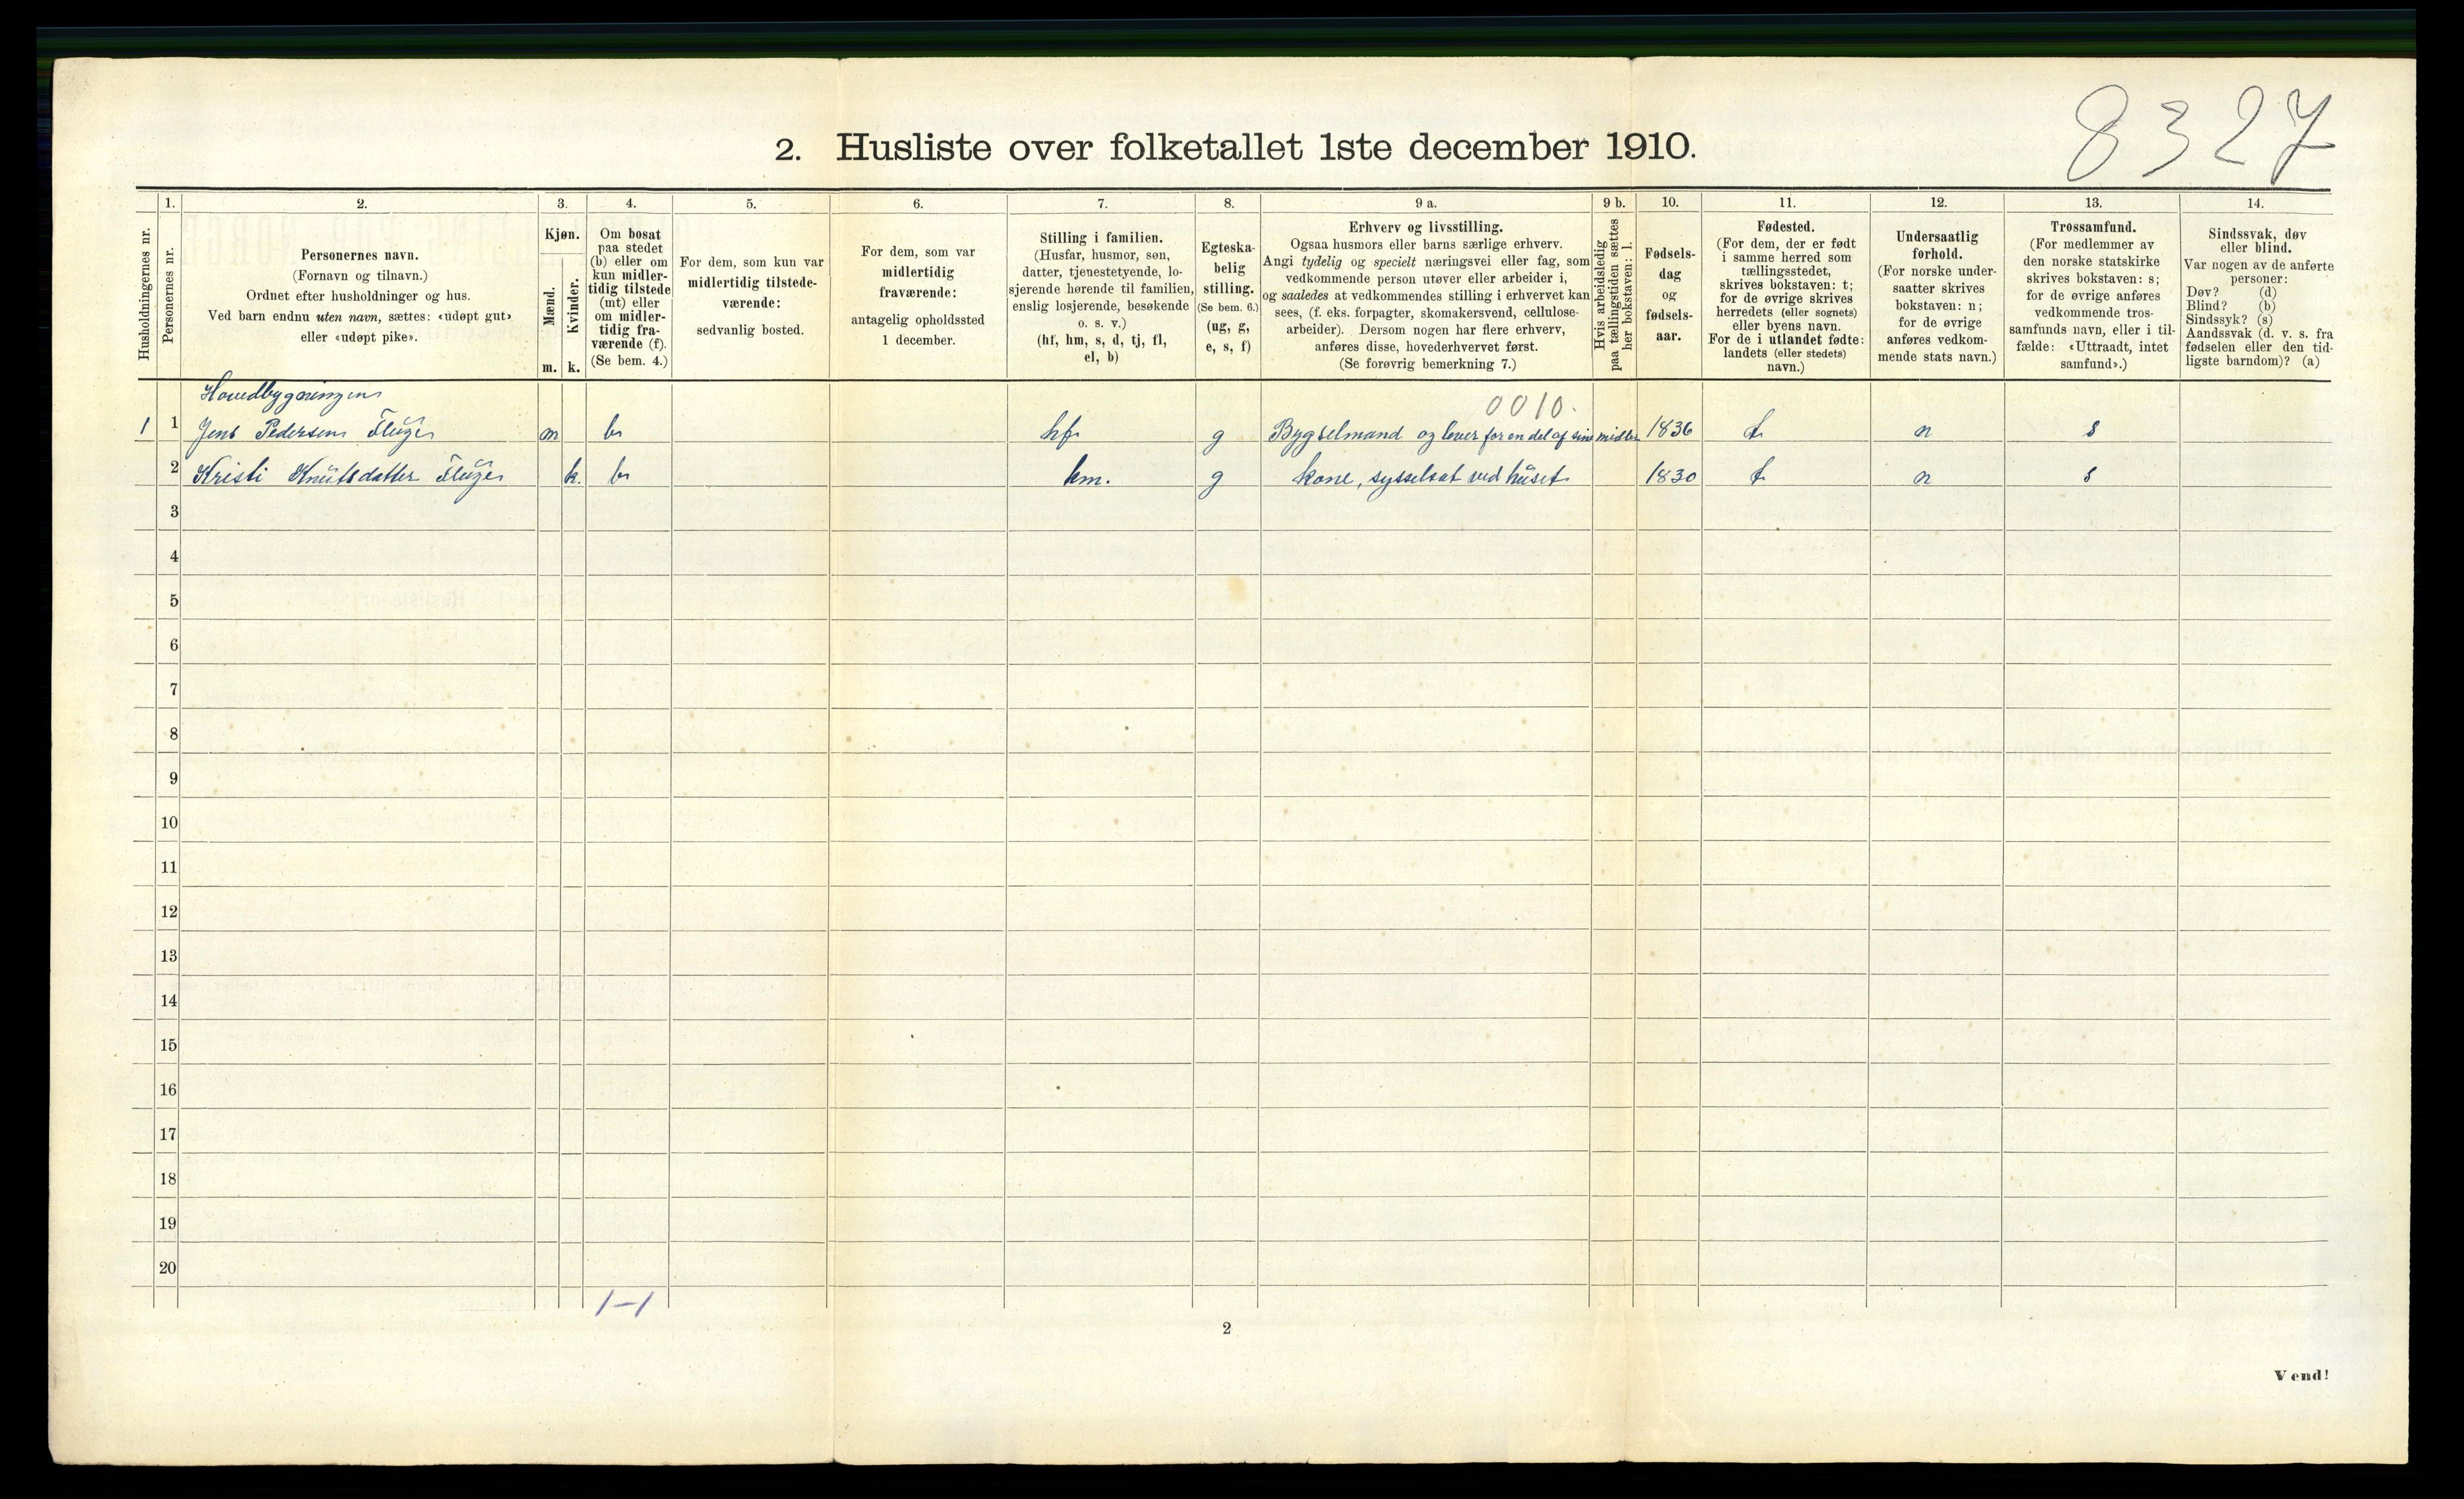 8327
2. Husliste over folketallet 1ste december 1910.
Husholdningernes nr.
1.
Personernes nr.
2.
Personernes navn.
(Fornavn og tilnavn.)
Ordnet efter husholdninger og hus.
Ved barn endnu uten navn, sættes: «udøpt gut»
eller «udøpt pike».
3.
Kjøn.
Mænd.
m.
Kvinder.
k.
4.
Om bosat
paa stedet
(b) eller om
kun midler-
tidig tilstede
(mt) eller
om midler-
tidig fra-
værende (f).
(Se bem. 4.)
5.
For dem, som kun var
midlertidig tilstede-
værende:
sedvanlig bosted.
6.
For dem, som var
midlertidig
fraværende:
antagelig opholdssted
1 december.
7.
Stilling i familien.
(Husfar, husmor, søn,
datter, tjenestetyende, lo-
sjerende hørende til familien,
enslig losjerende, besøkende
o. s. v.)
(hf, hm, s, d, tj, fl,
el, b)
8.
Egteska-
belig
stilling.
(Se bem. 6.)
(ug, g,
e, s, f)
9 a.
Erhverv og livsstilling.
Ogsaa husmors eller barns særlige erhverv.
Angi tydelig og specielt næringsvei eller fag, som
vedkommende person utøver eller arbeider i,
og saaledes at vedkommendes stilling i erhvervet kan
sees, (f. eks. forpagter, skomakersvend, cellulose-
arbeider). Dersom nogen har flere erhverv,
anføres disse, hovederhvervet først.
(Se forøvrig bemerkning 7.)
9 b.
Hvis arbeidsledig
paa tællingstiden sættes
her bokstaven: l.
10.
Fødsels-
dag
og
fødsels-
aar.
11.
Fødested.
(For dem, der er født
i samme herred som
tællingsstedet,
skrives bokstaven: t;
for de øvrige skrives
herredets (eller sognets)
eller byens navn.
For de i utlandet fødte:
landets (eller stedets)
navn.)
12.
Undersaatlig
forhold.
(For norske under-
saatter skrives
bokstaven: n;
for de øvrige
anføres vedkom-
mende stats navn.)
13.
Trossamfund.
(For medlemmer av
den norske statskirke
skrives bokstaven: s;
for de øvrige anføres
vedkommende tros-
samfunds navn, eller i til-
fælde: «Uttraadt, intet
samfund».)
14.
Sindssvak, døv
eller blind.
Var nogen av de anførte
personer:
Døv? (d)
Blind? (b)
Sindssyk? (s)
Aandssvak (d. v. s. fra
fødselen eller den tid-
ligste barndom)? (a)
Hovedbygningen
0010.
1 1 Jens Pedersen m b hf g Bygselmand og lever for en del af sine midler 1836 t n s
2 Kristi Knutsdatter k. b hm. g kone, sysselsat ved huset 1830 t n s
3
4
5
6
7
8
9
10
11
12
13
14
15
16
17
18
19
20
1-1
2
Vend!